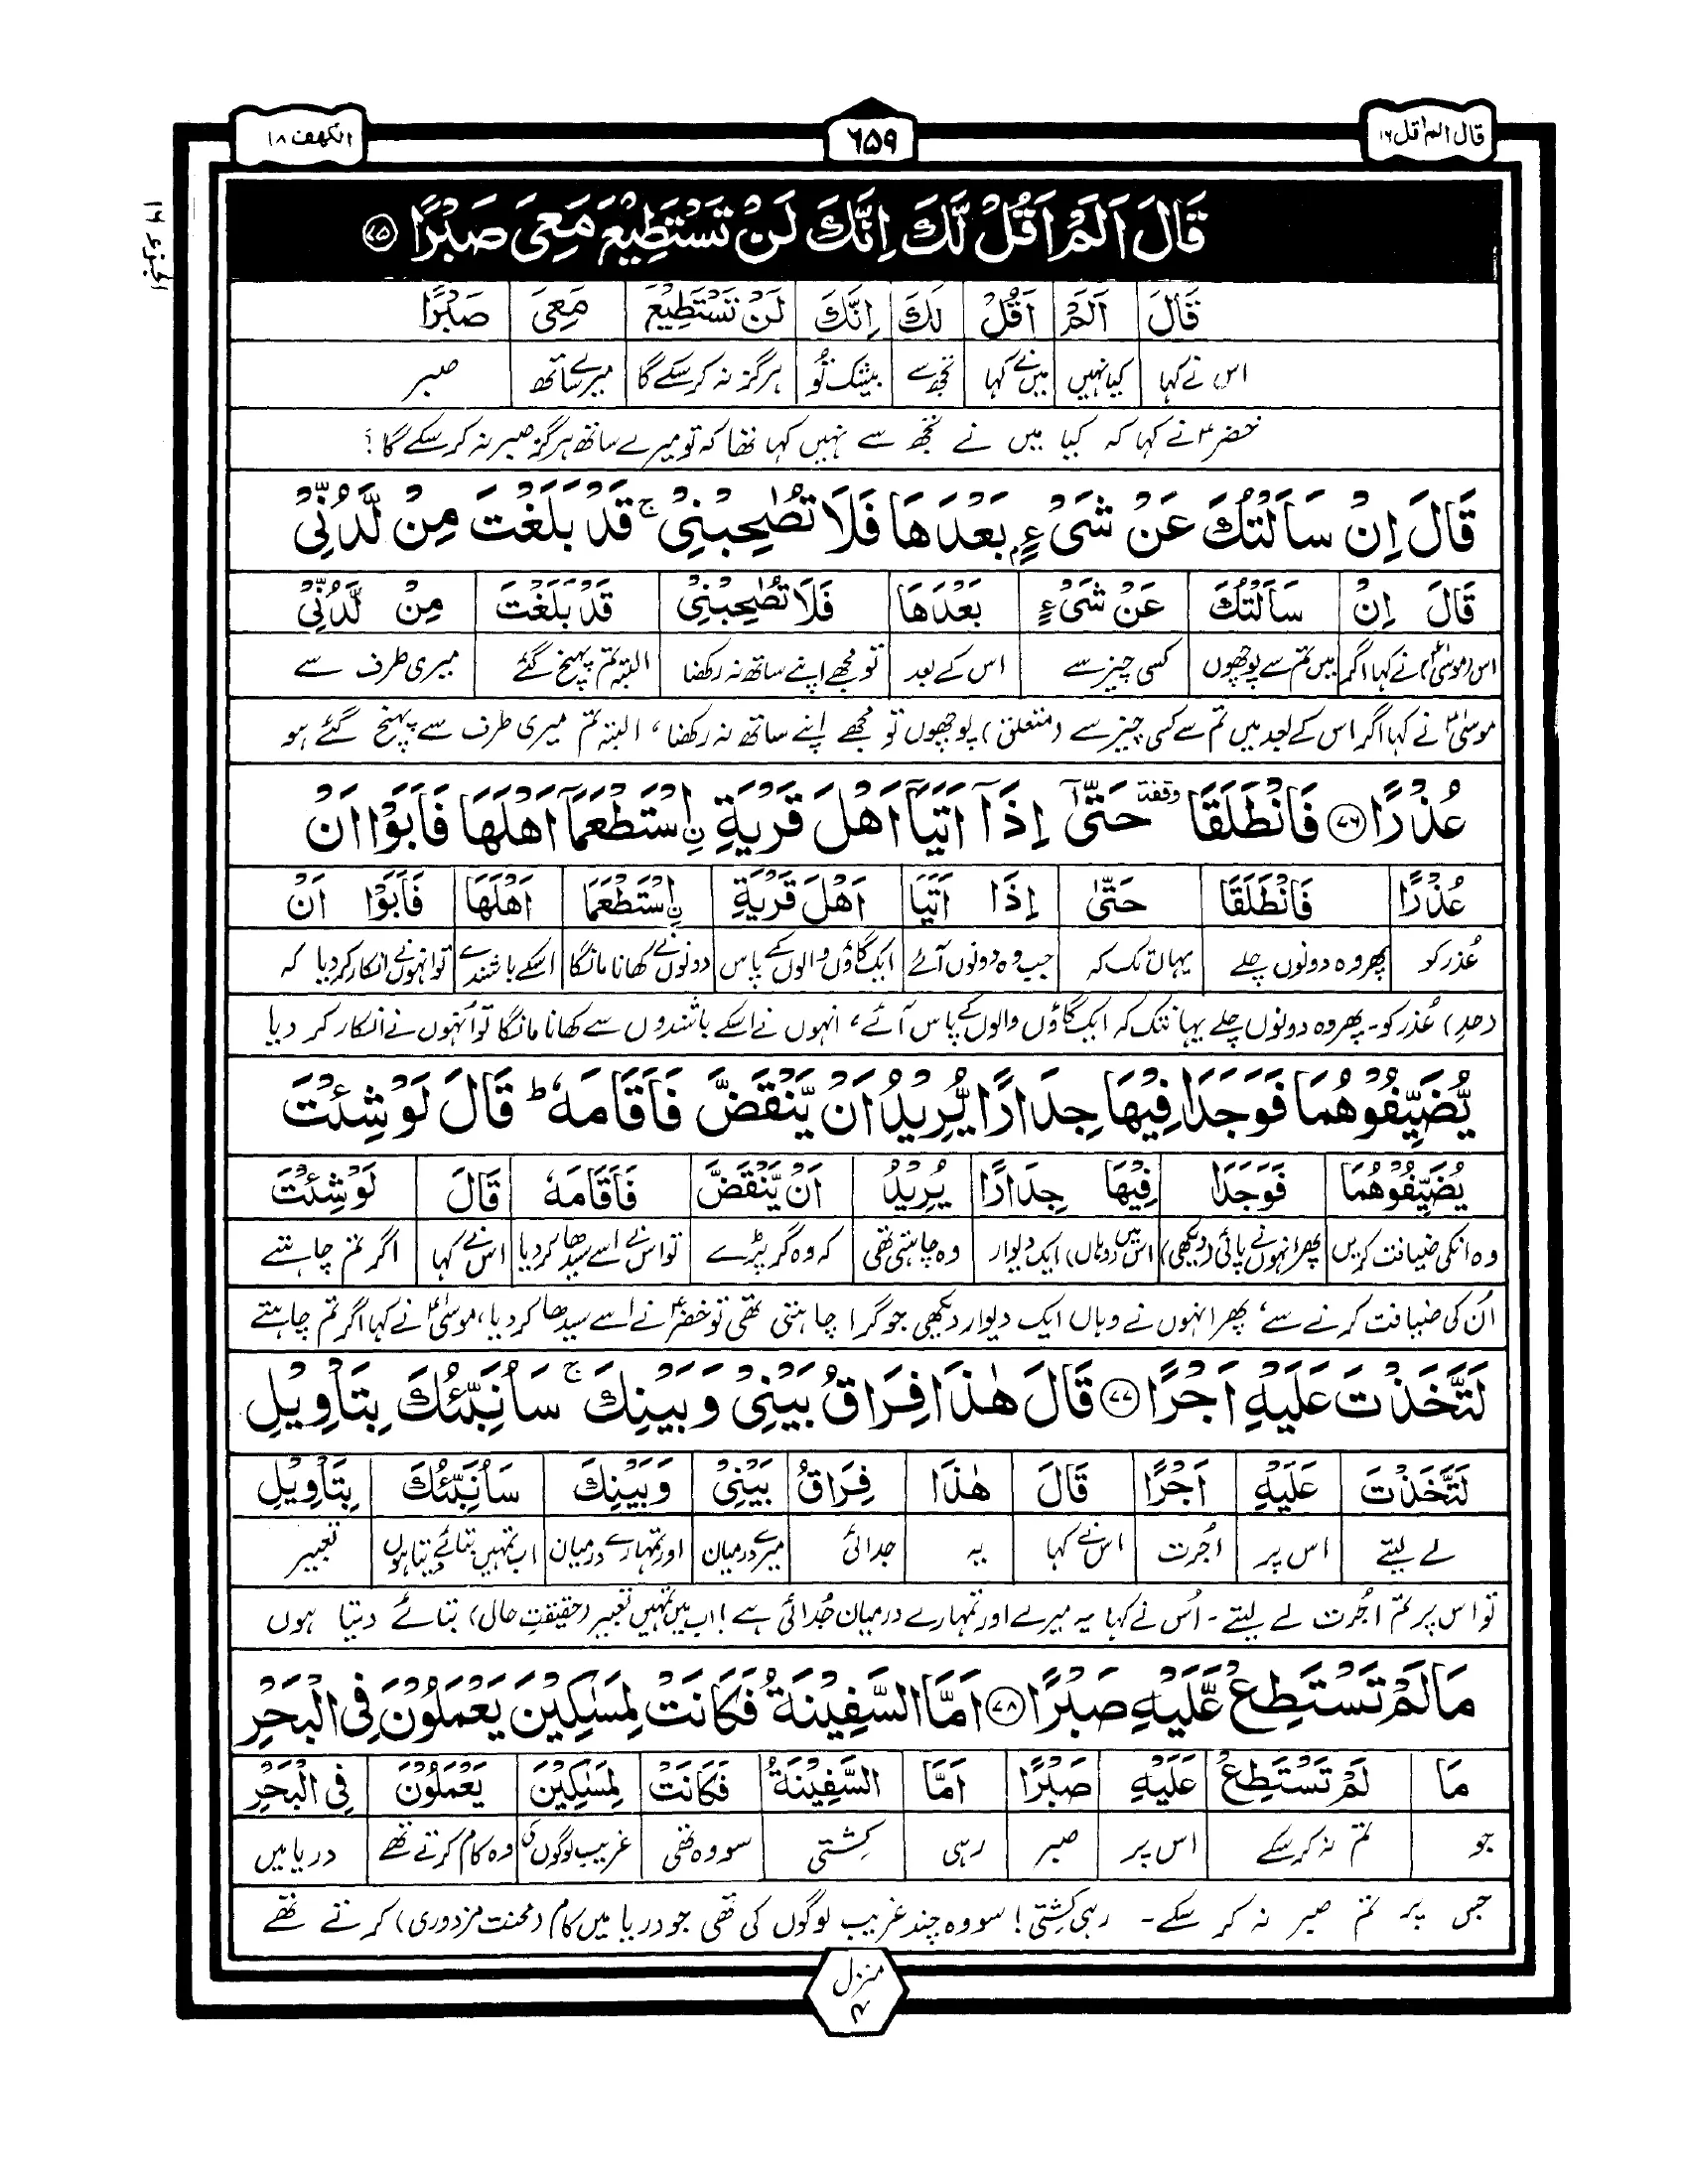 قال الم اقل ١٦
٦٥٩
الکھف ١٨
الجزء ١٦
قَالَ اَلَمْ اَقُلْ لَّكَ اِنَّكَ لَنْ تَسْتَطِيْعَ مَعِىَ صَبْرًا ﴿۷۵﴾
قَالَ اَلَمْ اَقُلْ لَكَ اِنَّكَ لَنْ تَسْتَطِيْعَ مَعِىَ صَبْرًا
اس نے کہا کیا نہیں میں نے کہا تجھ سے بیشک تُو ہرگز نہ کر سکے گا میرے ساتھ صبر
خضرؑ نے کہا کہ کیا میں نے تجھ سے نہیں کہا تھا کہ تو میرے ساتھ ہرگز صبر نہ کر سکے گا؟
قَالَ اِنْ سَاَلْتُكَ عَنْ شَىْءٍۭ بَعْدَهَا فَلَا تُصٰحِبْنِىْ ۚ قَدْ بَلَغْتَ مِنْ لَّدُنِّىْ
قَالَ اِنْ سَاَلْتُكَ عَنْ شَىْءٍ بَعْدَهَا فَلَا تُصٰحِبْنِىْ قَدْ بَلَغْتَ مِنْ لَّدُنِّىْ
اس (موسٰیؑ) نے کہا اگر میں تم سے پوچھوں کسی چیز سے اس کے بعد تو مجھے اپنے ساتھ نہ رکھنا البتہ تم پہنچ گئے میری طرف سے
موسٰیؑ نے کہا اگر اس کے بعد میں تم سے کسی چیز سے (متعلق) پوچھوں تو مجھے اپنے ساتھ نہ رکھنا، البتہ تم میری طرف سے پہنچ گئے ہو
عُذْرًا ﴿۷۶﴾ فَانْطَلَقَا وقفة حَتّٰىٓ اِذَآ اَتَيَآ اَهْلَ قَرْيَةِ ۨاسْتَطْعَمَآ اَهْلَهَا فَاَبَوْا اَنْ
عُذْرًا فَانْطَلَقَا حَتّٰى اِذَا اَتَيَا اَهْلَ قَرْيَةِ ۨاسْتَطْعَمَا اَهْلَهَا فَاَبَوْا اَنْ
عُذر کو پھر وہ دونوں چلے یہاں تک کہ جب وہ دونوں آئے ایک گاؤں والوں کے پاس دونوں نے کھانا مانگا اسکے باشندے تو انہوں نے انکار کر دیا کہ
(حدِ) عُذر کو۔ پھر وہ دونوں چلے یہانتک کہ ایک گاؤں والوں کے پاس آئے، انہوں نے اسکے باشندوں سے کھانا مانگا تو اُنہوں نے انکار کر دیا
يُّضَيِّفُوْهُمَا فَوَجَدَا فِيْهَا جِدَارًا يُّرِيْدُ اَنْ يَّنْقَضَّ فَاَقَامَهٗ ؕ قَالَ لَوْ شِئْتَ
يُضَيِّفُوْهُمَا فَوَجَدَا فِيْهَا جِدَارًا يُرِيْدُ اَنْ يَّنْقَضَّ فَاَقَامَهٗ قَالَ لَوْ شِئْتَ
وہ انکی ضیافت کریں پھر انہوں نے پائی (دیکھی) اس میں (وہاں) ایک دیوار وہ چاہتی تھی کہ وہ گر پڑے تو اس نے اسے سیدھا کر دیا اس نے کہا اگر تم چاہتے
اُن کی ضیافت کرنے سے، پھر انہوں نے وہاں ایک دیوار دیکھی جو گرا چاہتی تھی تو خضرؑ نے اسے سیدھا کر دیا، موسٰیؑ نے کہا اگر تم چاہتے
لَتَّخَذْتَ عَلَيْهِ اَجْرًا ﴿۷۷﴾ قَالَ هٰذَا فِرَاقُ بَيْنِىْ وَبَيْنِكَ ۚ سَاُنَبِّئُكَ بِتَاْوِيْلِ
لَتَّخَذْتَ عَلَيْهِ اَجْرًا قَالَ هٰذَا فِرَاقُ بَيْنِىْ وَبَيْنِكَ سَاُنَبِّئُكَ بِتَاْوِيْلِ
لے لیتے اس پر اُجرت اس نے کہا یہ جدائی میرے درمیان اور تمہارے درمیان اب تمہیں بتائے دیتا ہوں تعبیر
تو اس پر تم اُجرت لے لیتے۔ اُس نے کہا یہ میرے اور تمہارے درمیان جُدائی ہے! اب میں تمہیں تعبیر (حقیقتِ حال) بتائے دیتا ہوں
مَا لَمْ تَسْتَطِعْ عَّلَيْهِ صَبْرًا ﴿۷۸﴾ اَمَّا السَّفِيْنَةُ فَكَانَتْ لِمَسٰكِيْنَ يَعْمَلُوْنَ فِى الْبَحْرِ
مَا لَمْ تَسْتَطِعْ عَلَيْهِ صَبْرًا اَمَّا السَّفِيْنَةُ فَكَانَتْ لِمَسٰكِيْنَ يَعْمَلُوْنَ فِى الْبَحْرِ
جو تم نہ کر سکے اس پر صبر رہی کشتی سو وہ تھی غریب لوگوں کی وہ کام کرتے تھے دریا میں
جس پر تم صبر نہ کر سکے۔ رہی کشتی! سو وہ چند غریب لوگوں کی تھی جو دریا میں کام (محنت مزدوری) کرتے تھے
منزل ۴